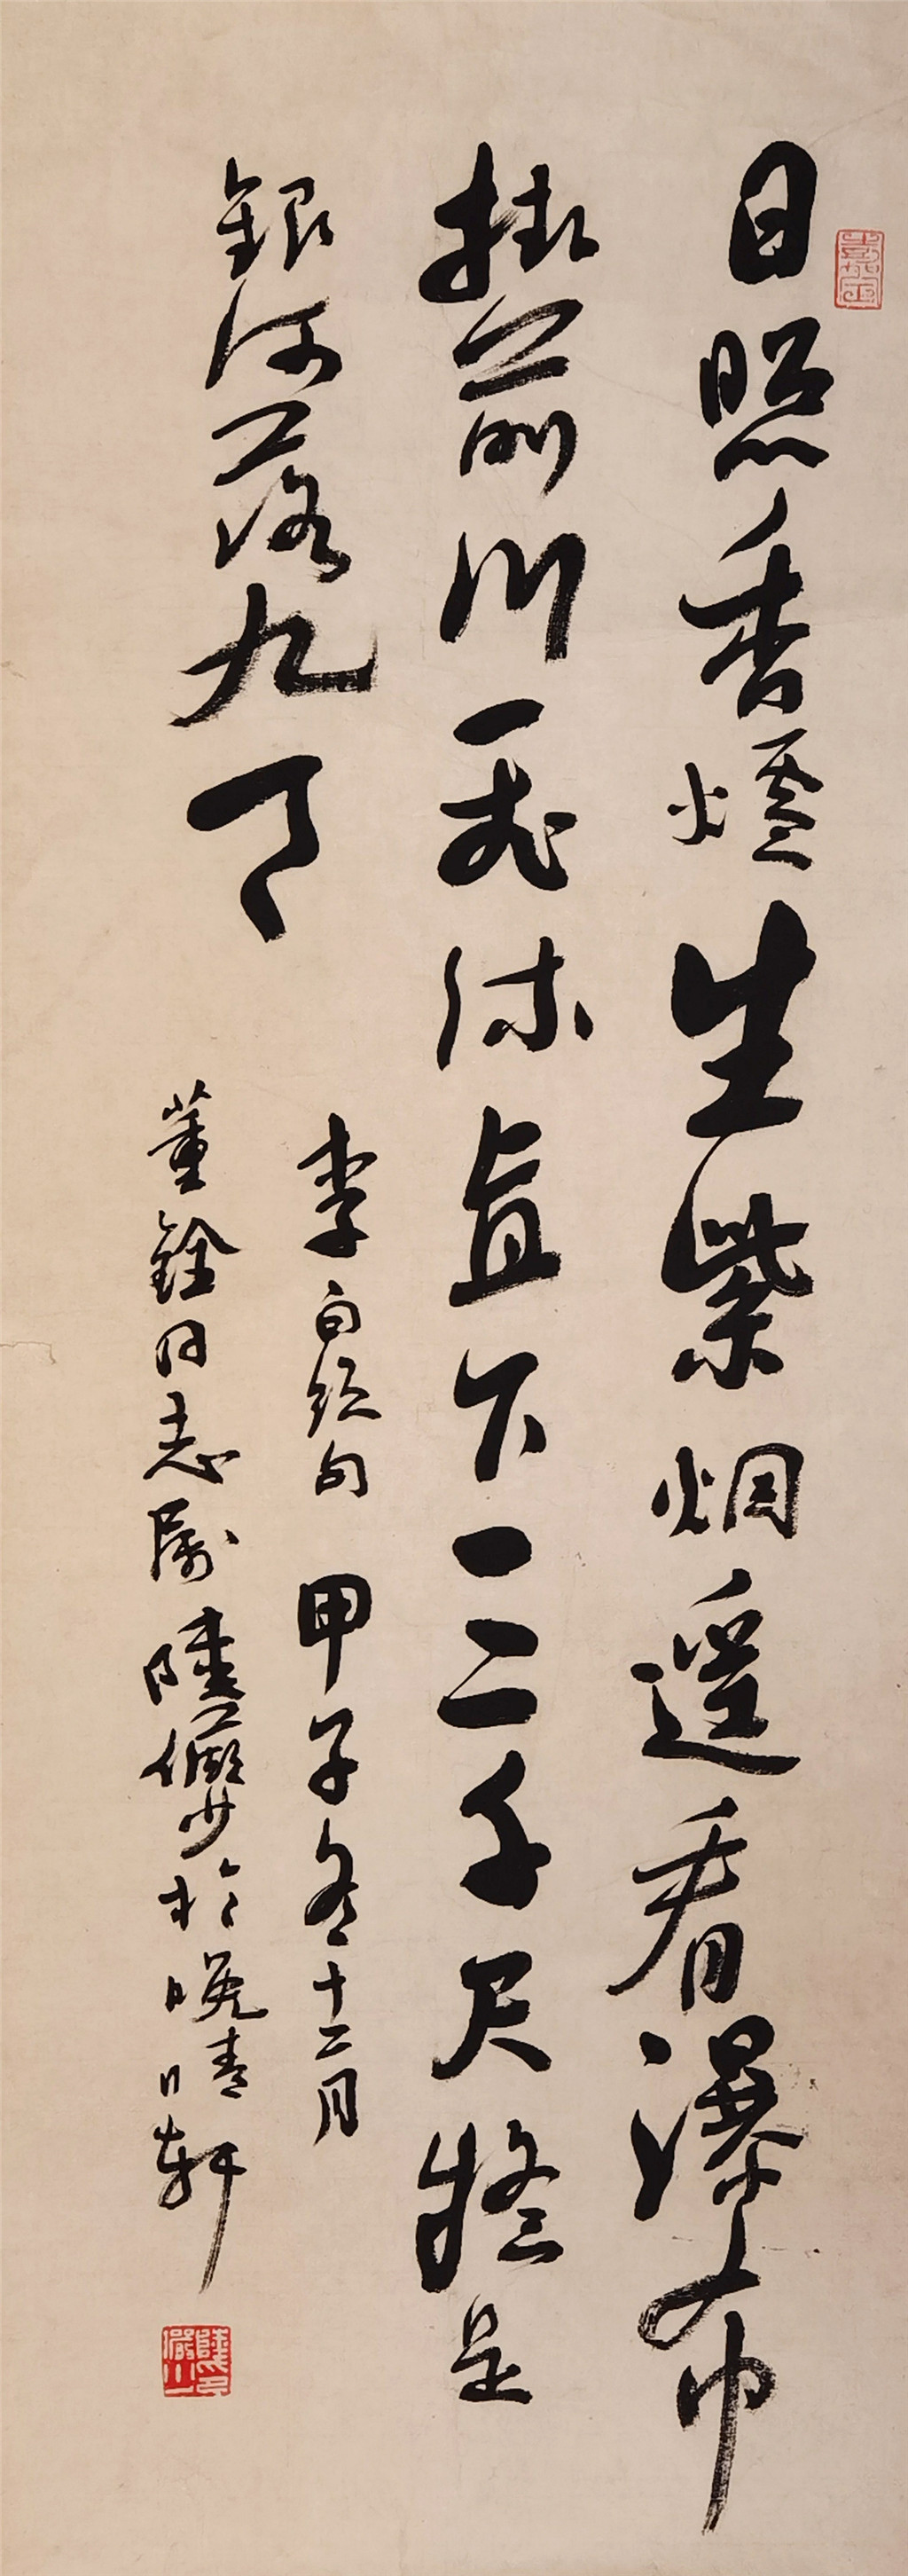 日照香爐生紫烟遥看瀑布
掛前川飛流直下三千尺疑是
銀河落九天
李白絶句 甲子冬十二月
董銓同志属 陸儼少於晚晴軒